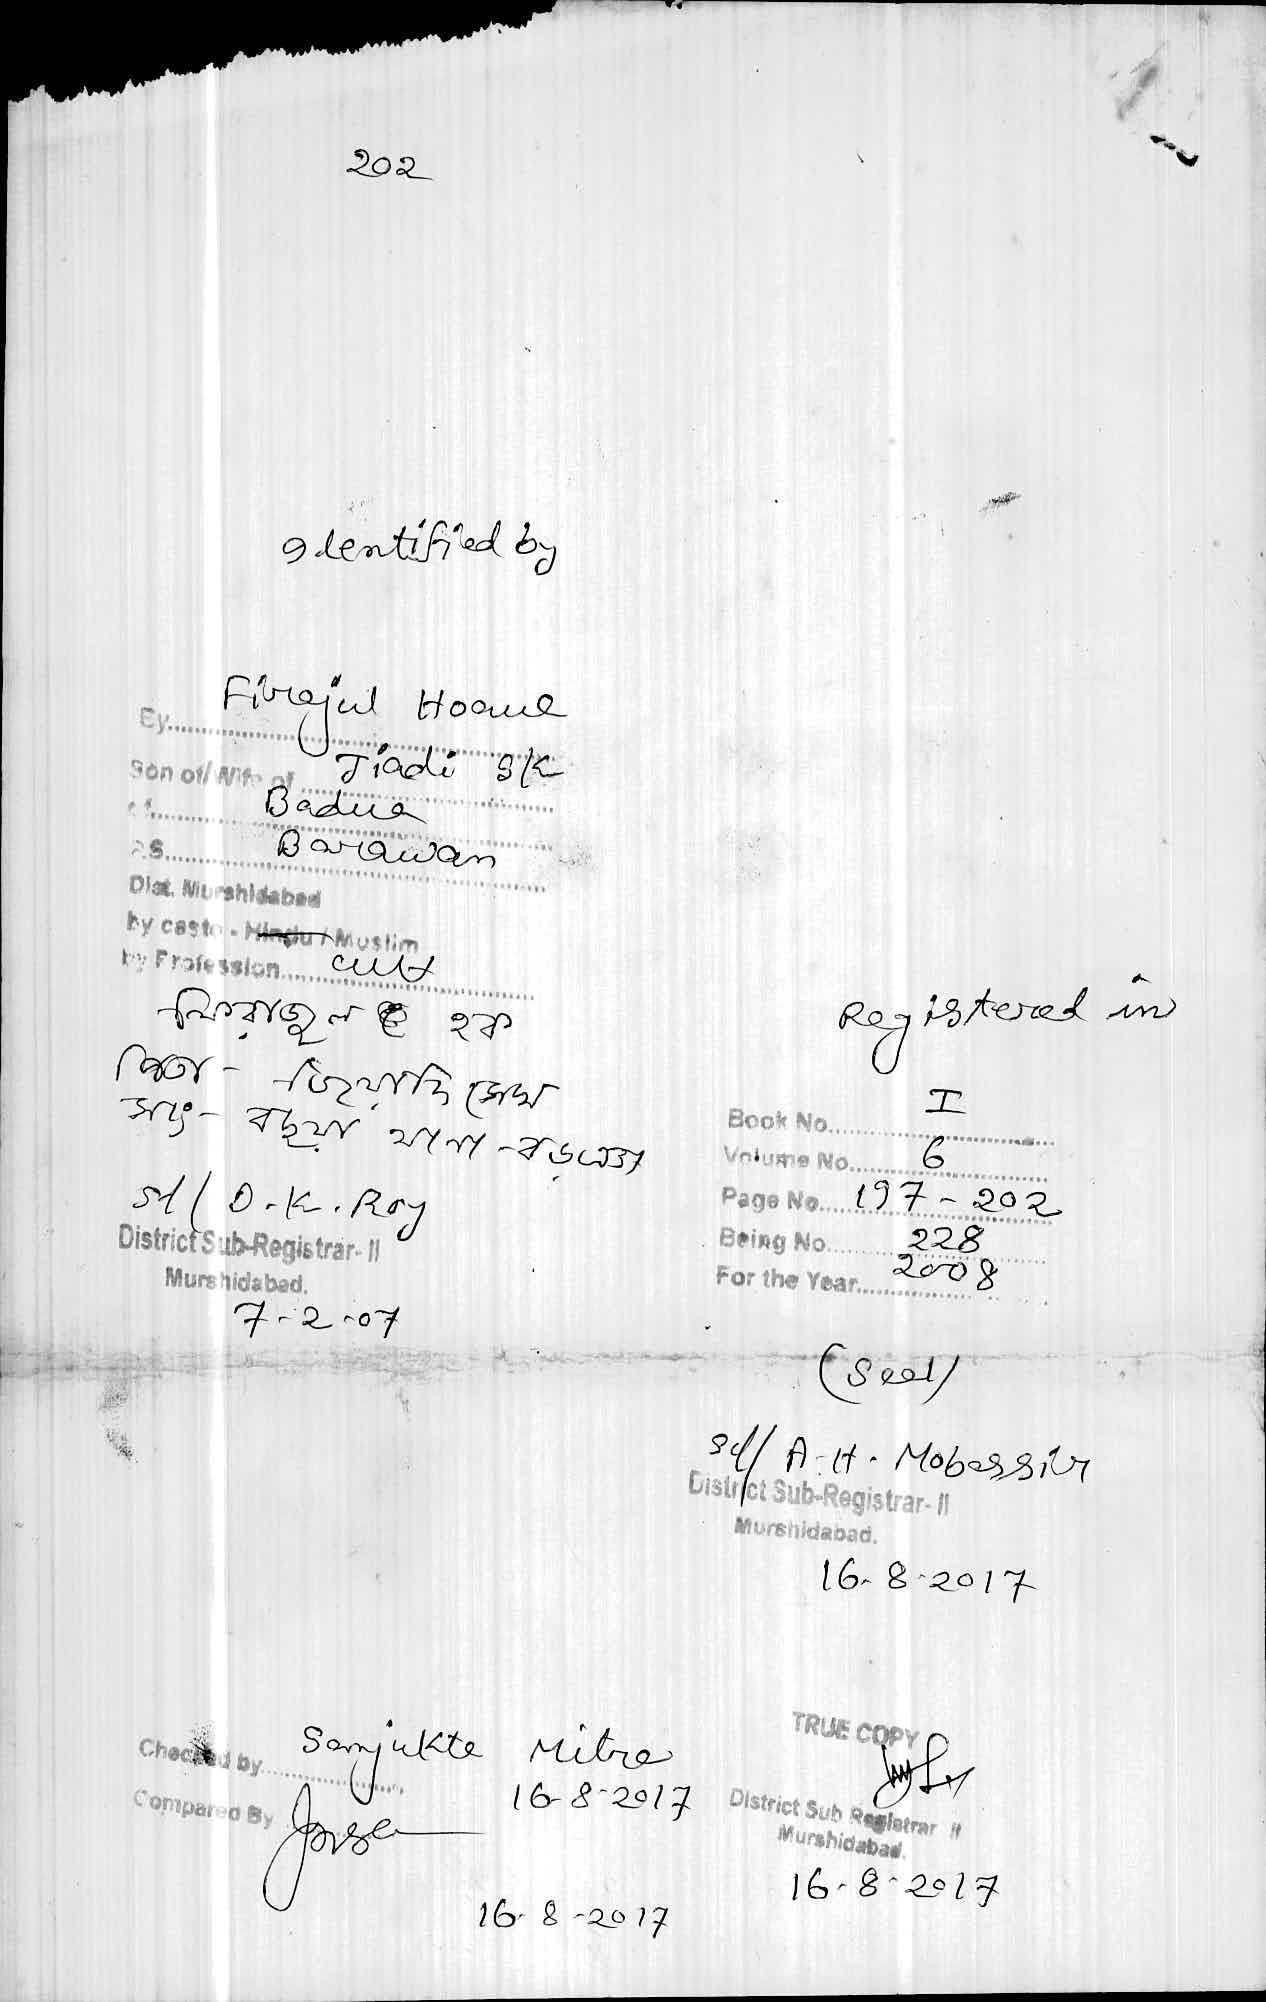 202
Identified by
By Firajul Hoque
Son of/Wife of Jiadi Sk
Badua
P.S. Barawan
Dist. Murshidabad
by caste - Hindu / Muslim
by Profession cult
ফিরাজুল হক
পিতা - জিয়াদি সেখ
সাং - বদুয়া থানা - বড়ঞা
Sd/ D. K. Roy
District Sub-Registrar- II
Murshidabad.
7-2-07
Registered in
Book No. I
Volume No. 6
Page No. 197 - 202
Being No. 228
For the Year 2008
(Seal)
Sd/ A. H. Mobassir
District Sub-Registrar- II
Murshidabad.
16-8-2017
Checked by Sanjukta Mitra
16-8-2017
Compared By
16-8-2017
TRUE COPY
District Sub Registrar II
Murshidabad.
16-8-2017